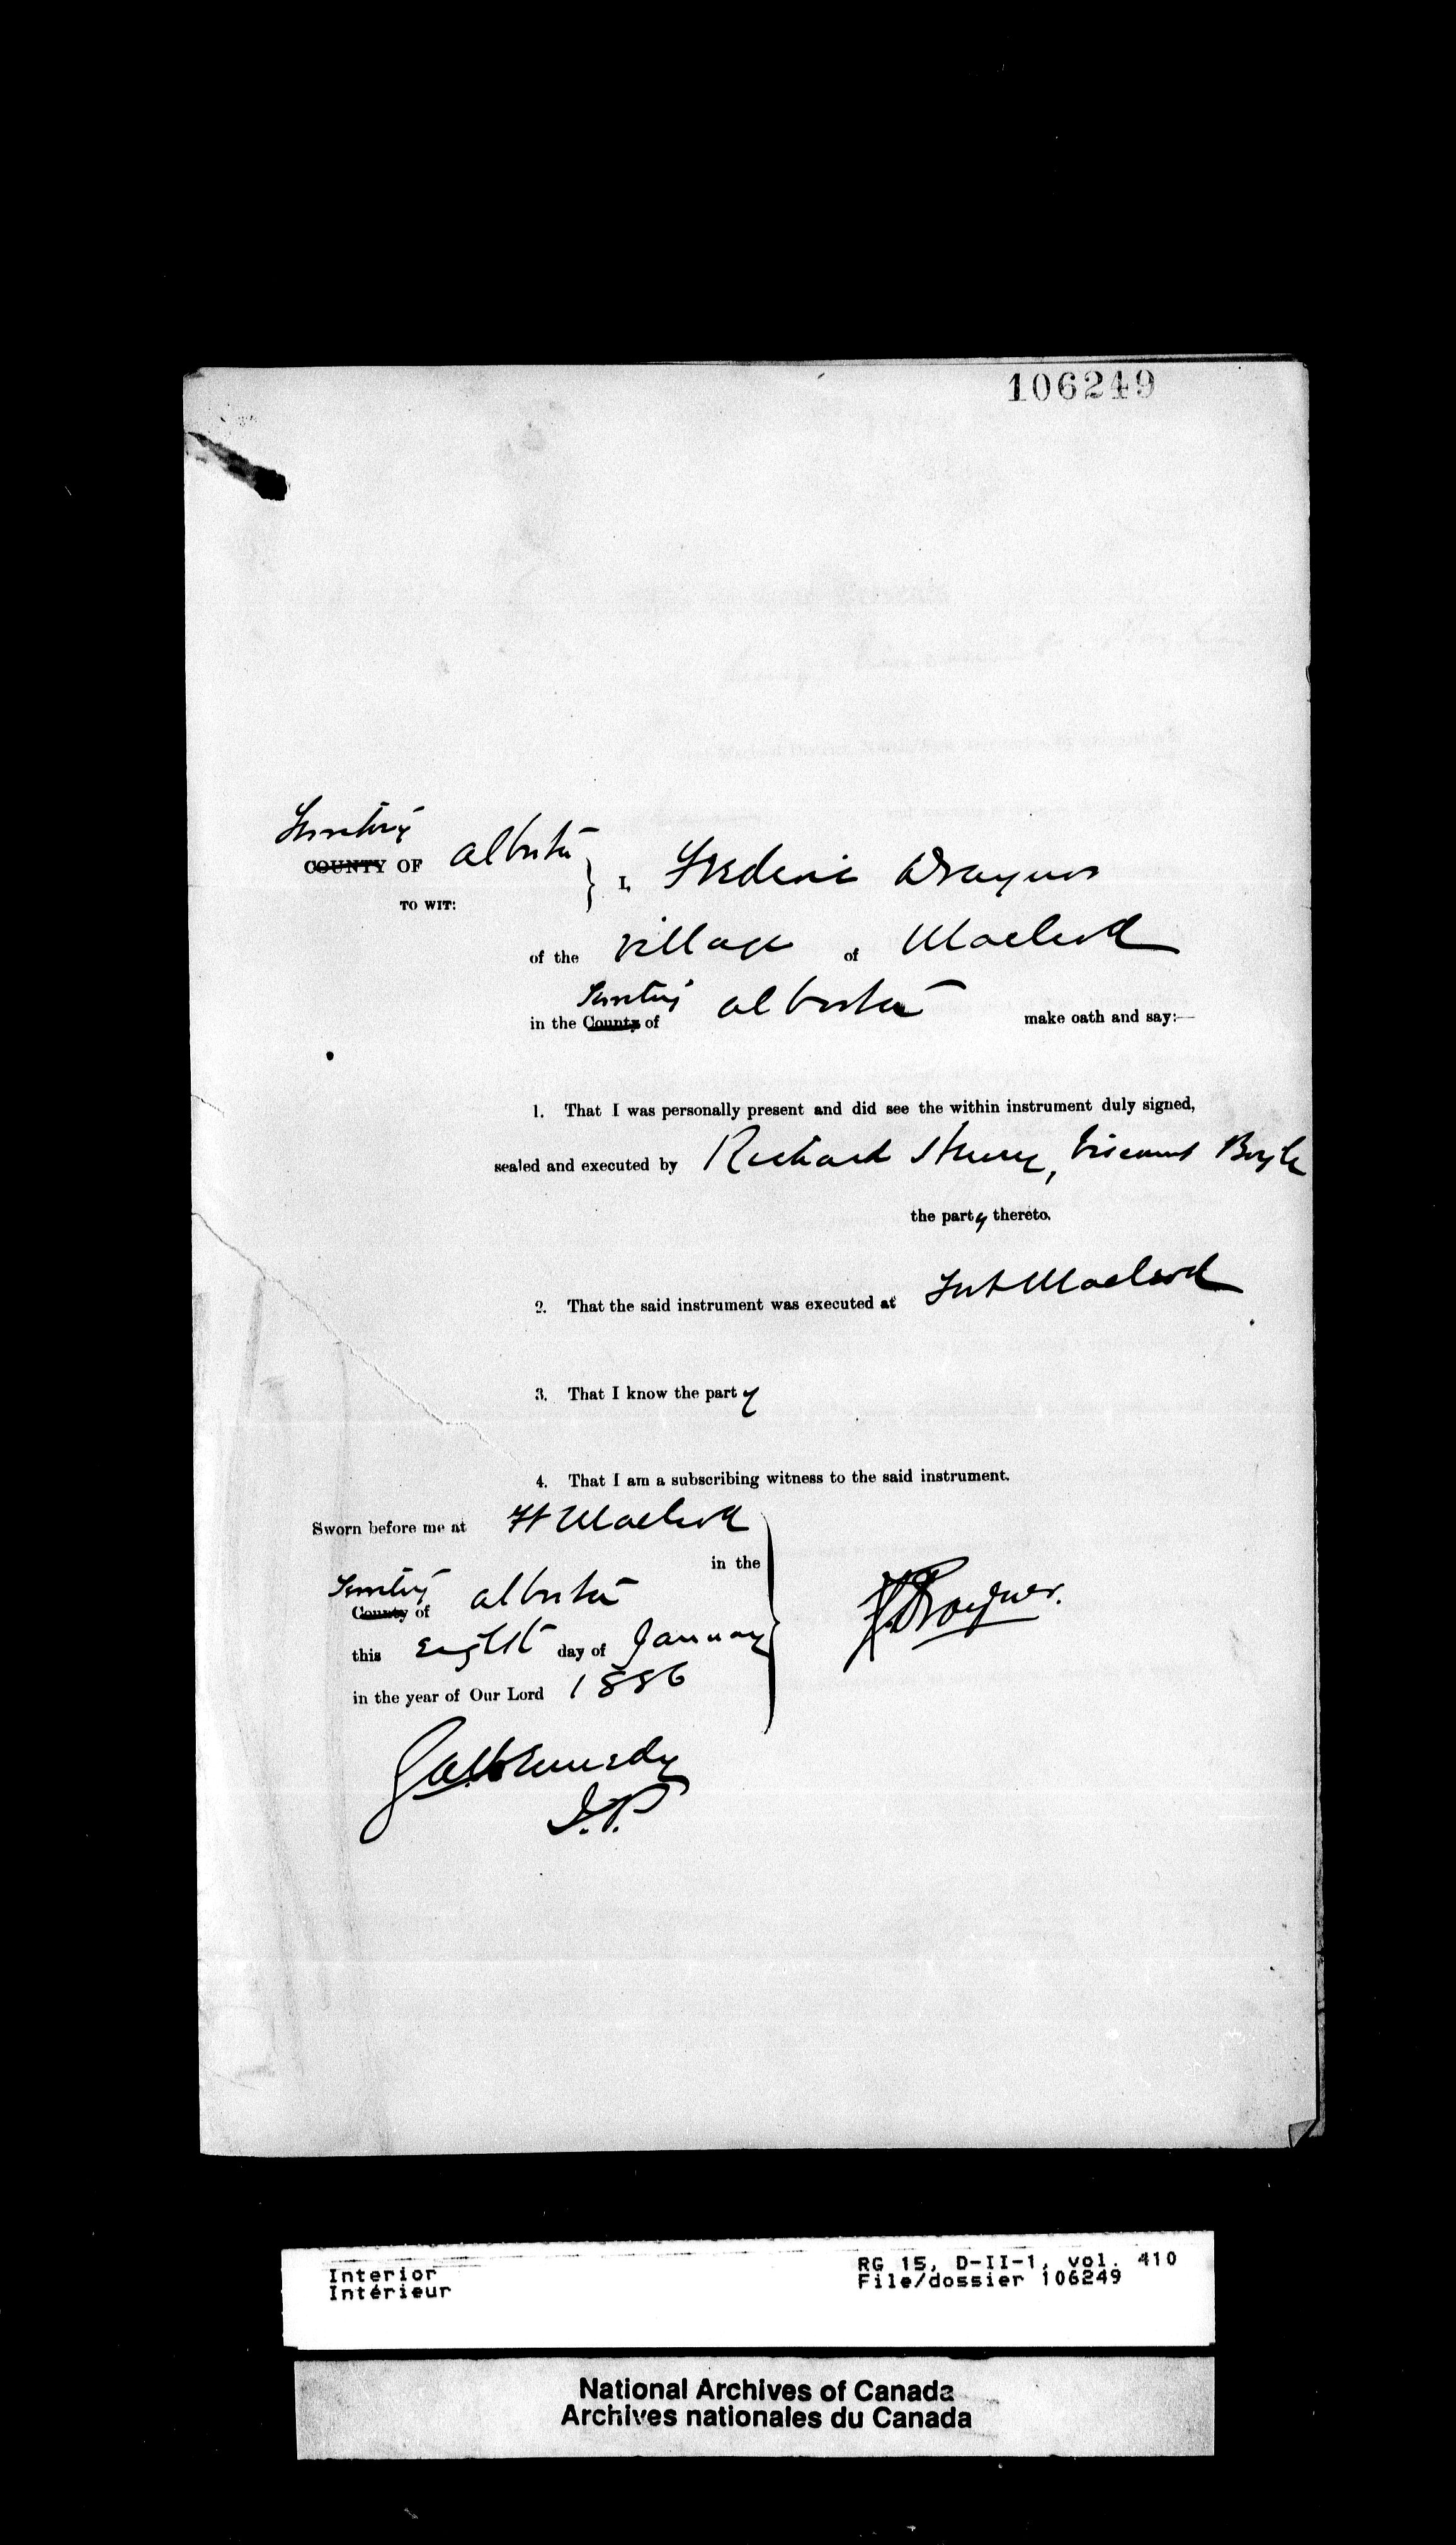 106249
Territory
COUNTY OF Alberta
TO WIT:
I, Frederic Draynor
of the village of Macleod
Territory
in the County of Alberta make oath and say:—
1. That I was personally present and did see the within instrument duly signed,
sealed and executed by Richard Henry, Viscount Boyle
the party thereto.
2. That the said instrument was executed at Fort Macleod
3. That I know the party
4. That I am a subscribing witness to the said instrument.
Sworn before me at Ft Macleod
in the
Territory
County of Alberta
this eighth day of January
in the year of Our Lord 1886
Kennedy
J.P.
Interior
Intérieur
RG 15, D-II-1, vol. 410
File/dossier 106249
National Archives of Canada
Archives nationales du Canada